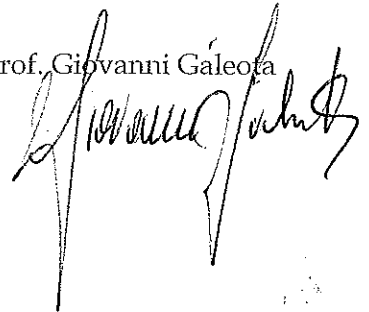 rof. Giovanni Galeota
Giovanni Galeota